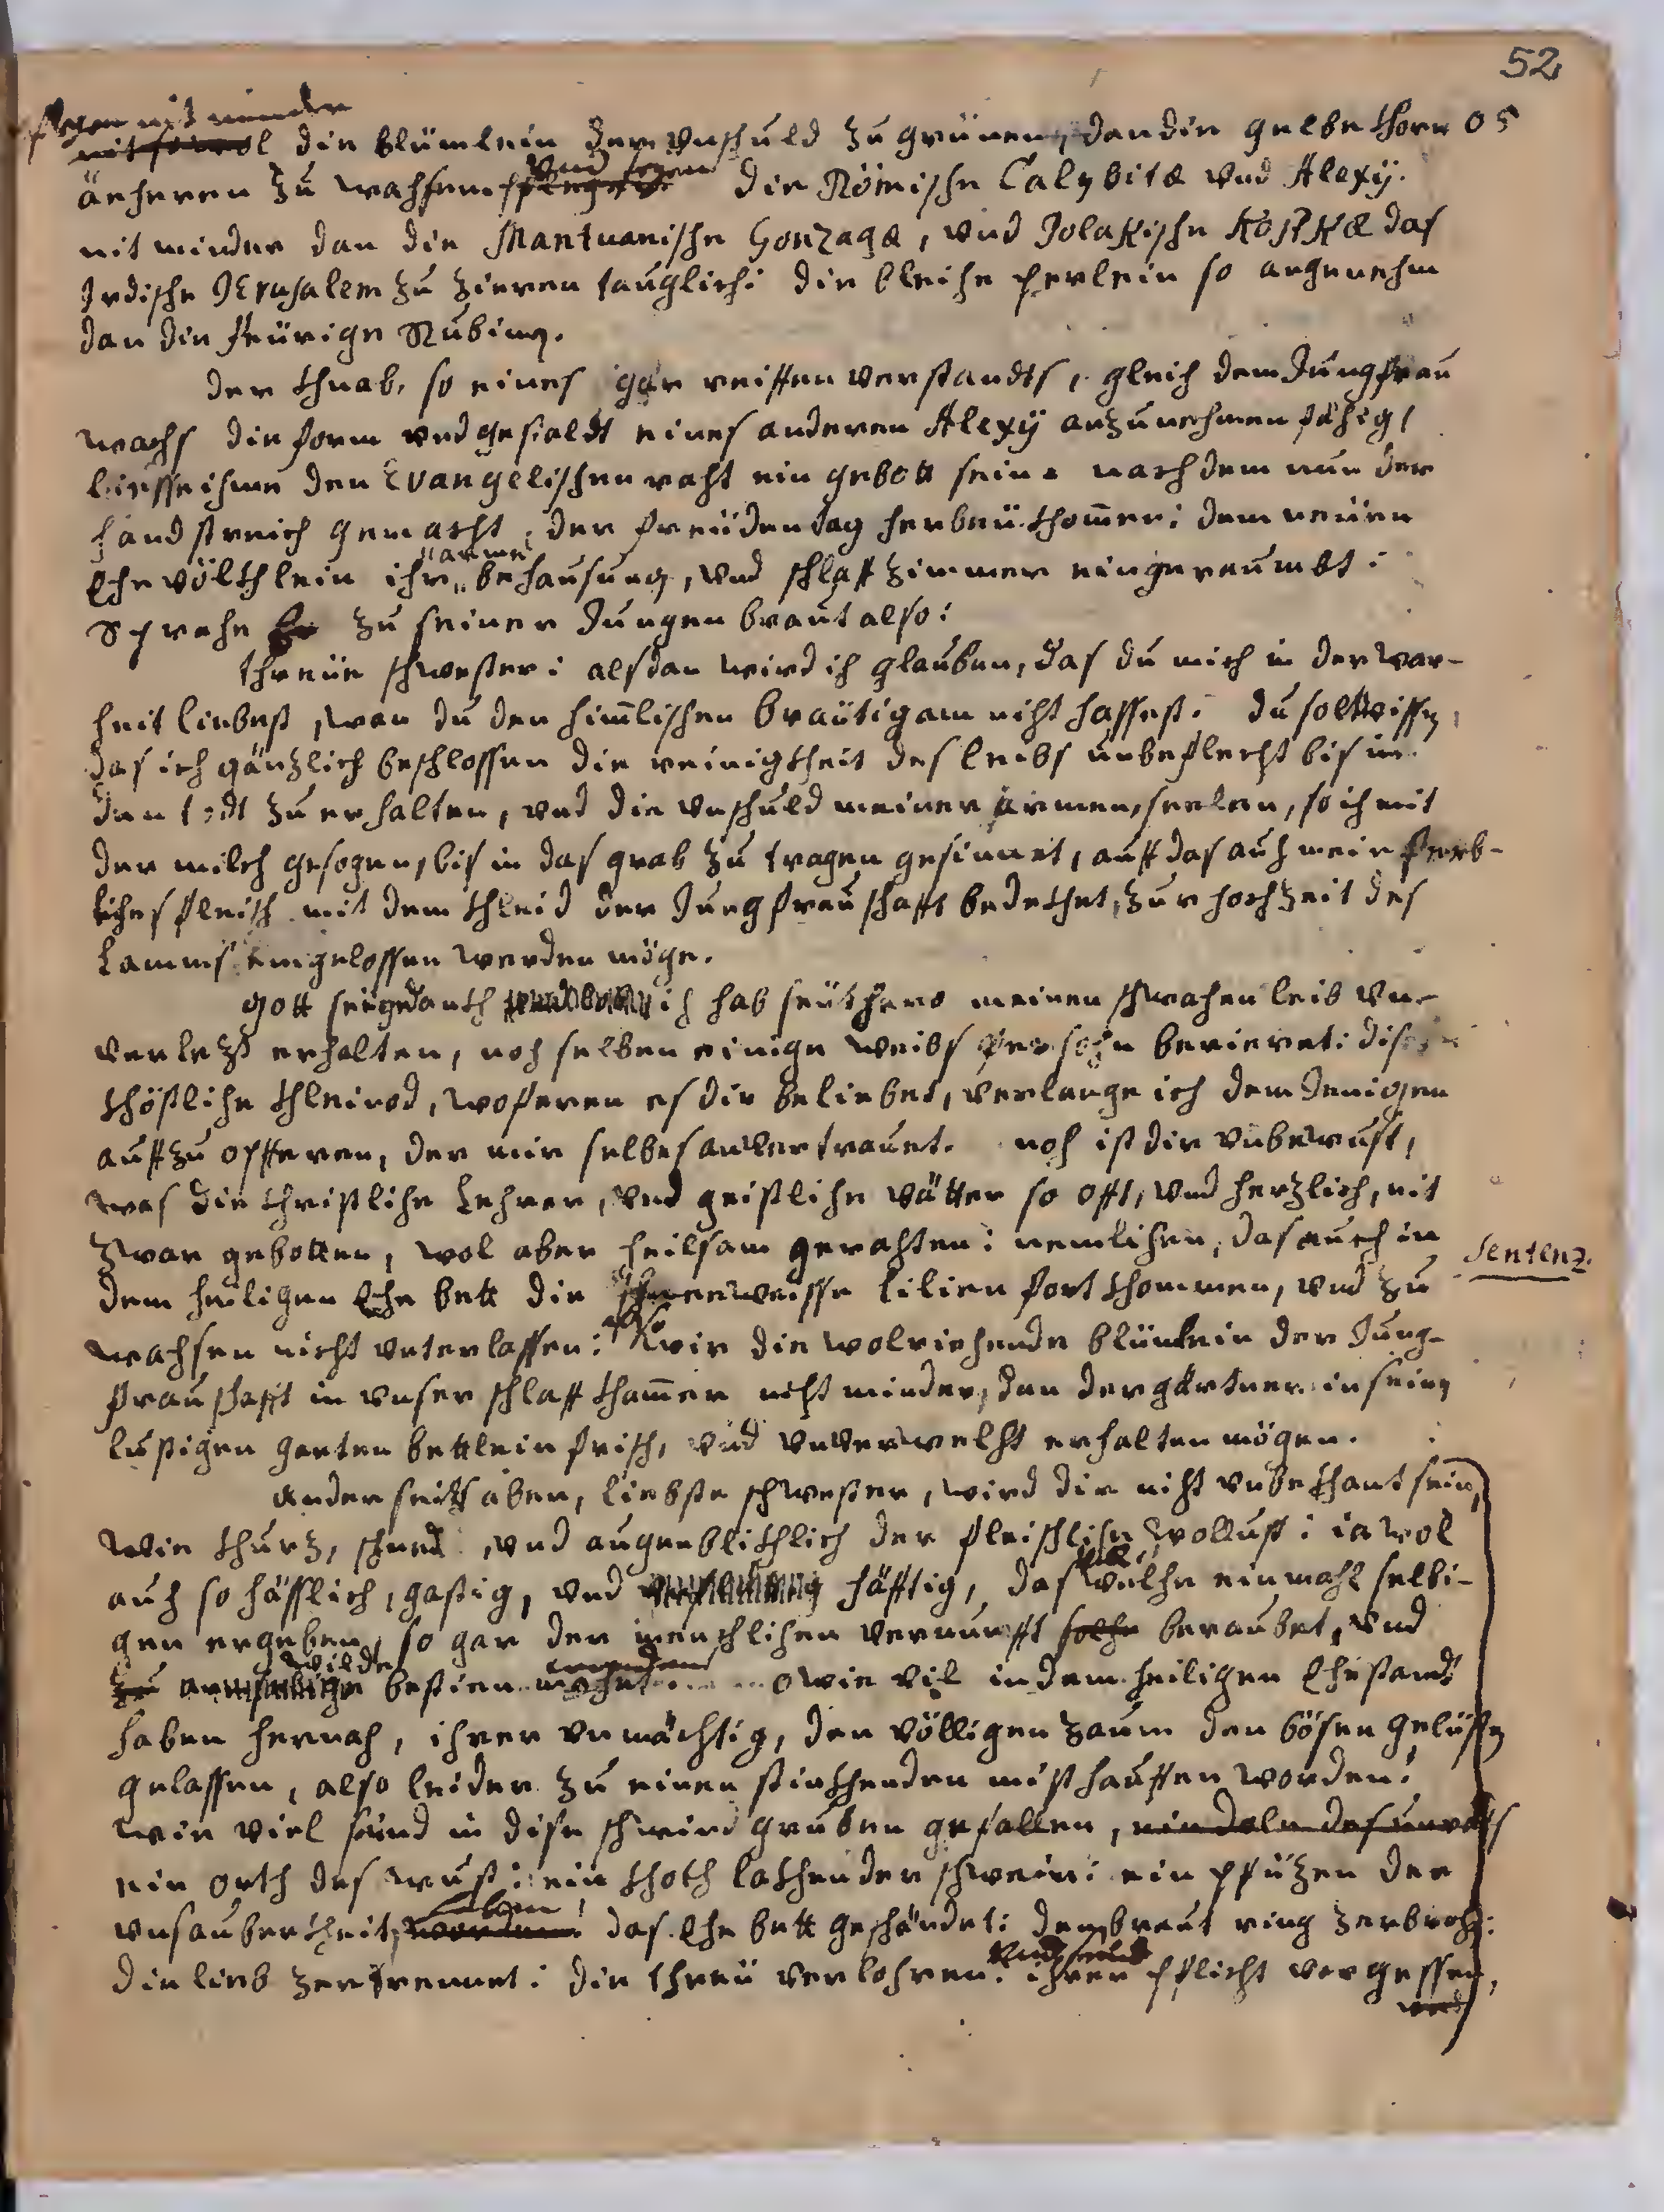 52
pflegen nit minder
nit sowol die blümlein der Vnschuld zu grünen, dan die gelbe thorn 05
äheren zu wachsen pflegen. Vnd seyen die Römische Calybitæ vnd Alexÿ.
nit minder dan die Mantuanische Gonzagæ, vnd Polakische Kostkæ das
Irdische JErusalem zu zieren tauglich: die bleiche perlein so angenehm
dan die feürige Rubinen.
Der thnab, so eines gar reiffen verstandts, gleich dem Jungfrau
wachs die form vnd gestaldt eines anderen Alexÿ anzunehmen fähig,
liesse ihme den Evangelischen raht ein gebott sein. nach dem nun der
handstreich gemacht, der freüden dag herbeü thom̃en: dem neüen
Ehe völthlein ihr arme behausung, vnd schlaff zimmer eingeraumbt:
Sprache Er zu seiner Jungen braut also:
threüe schwester: alsdan wird ich glauben, das du mich in der war-
heit liebest, wan du den him̃lischen bräutigam nicht hassest. du solt wissen,
das ich gänzlich beschlossen die reinigtheit des leibs unbeflecht bis in
den todt zu erhalten, vnd die vnschuld meiner armen seelen, so ich mit
der milch gesogen, bis in das grab zu tragen gesinnet, auff das auch mein sterb-
liches fleisch mit dem thleid der Jungfrauschafft bedethet, zur hochzeit des
Lamms eingelossen werden möge.
Gott seÿ gedanth ich hab seüthero meinen schwachen leib vn-
verlezt erhalten, noch selben einige weibs persohn berieret: dises
thöstliche thleinod, woferen es dir beliebet, verlange ich dem Jenigen
auffzu opfferen, der mir selbes anvertrauet. noch ist dir vnbewust,
was die christliche Lehrer, vnd geistliche vätter so offt, vnd herzlich, nit
zwar gebotten, wol aber heilsam gerahten: nemlichen, das auch in
Sentenz.
dem heiligen Ehe bett die schneeweisse lilien fort thommen, vnd zu
wachsen nicht vnterlassen: also wir die wolriechende blümlein der Jung-
frauschafft in vnser schlaff tham̃er nicht minder, dan der gärtner in seinem
lustigen garten bettlein frisch, vnd vnverwelcht erhalten mögen.
Anderseits aber, liebste schwester, wird dir nicht vnbethant sein,
wie thurz, schned, vnd augenblichlich der fleischliche wollust: ia wol
auch so hässlich, gastig, vnd häfftig, das welche einmahl selbi-
gen ergeben, so gar der menschlichen vernunfft solche beraubet, vnd
zu armselige wilde bestien machet. o wie vil in dem heiligen Ehestandt
haben hernach, ihrer vnmächtig, den völligen zaum den bösen gelüsten
gelassen, also leider zu einen stinthenden misthauffen worden!
wie viel seind in dise schwein gruben gefallen,
ein orth des wust: ein thoth lathen der schwein: ein pfützen der
vnsauberkheit worden! das Ehe bett geschändet: den braut ring zerbrochen:
die lieb zertrennet: die threü verlohren: ihrer pflicht vergessen,
vnd